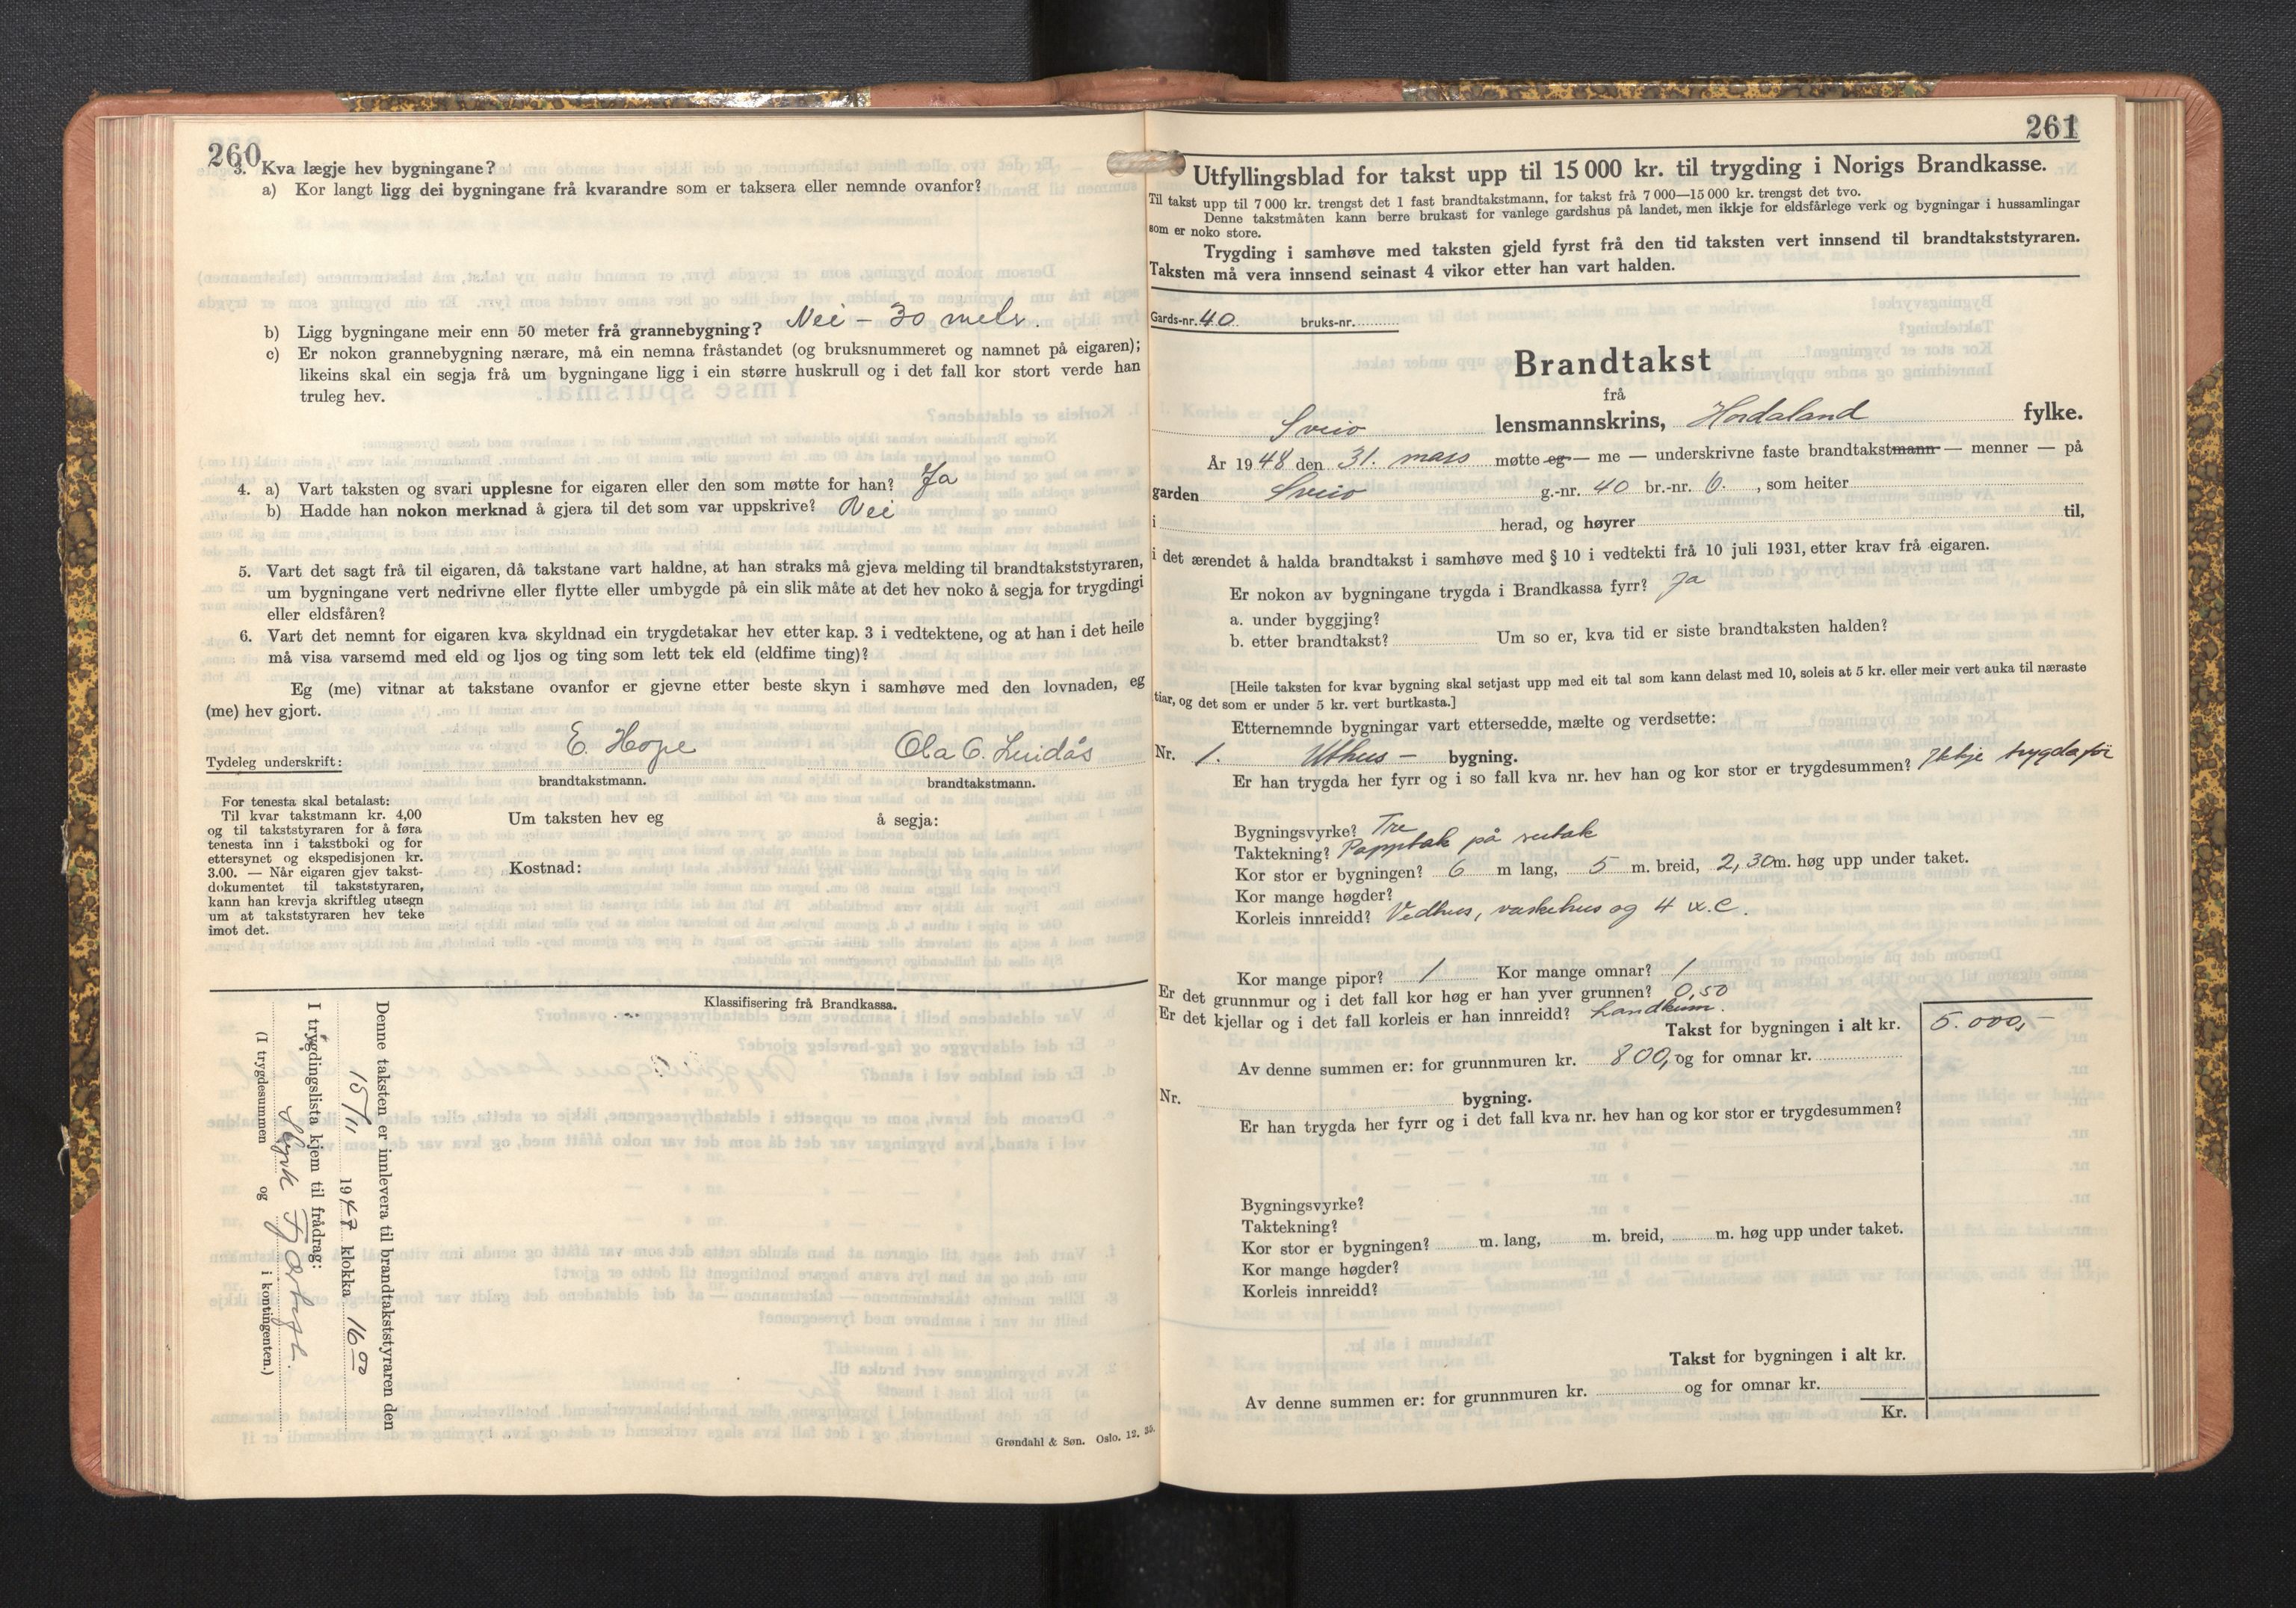 260
3. Kva lægje hev bygningane?
a) Kor langt ligg dei bygningane frå kvarandre som er taksera eller nemnde ovanfor?
b) Ligg bygningane meir enn 50 meter frå grannebygning? Nei – 30 meter.
c) Er nokon grannebygning nærare, må ein nemna fråstandet (og bruksnummeret og namnet på eigaren);
likeins skal ein segja frå um bygningane ligg i ein større huskrull og i det fall kor stort verde han
truleg hev.
4. a) Vart taksten og svari upplesne for eigaren eller den som møtte for han? Ja
b) Hadde han nokon merknad å gjera til det som var uppskrive? Nei
5. Vart det sagt frå til eigaren, då takstane vart haldne, at han straks må gjeva melding til brandtakststyraren,
um bygningane vert nedrivne eller flytte eller umbygde på ein slik måte at det hev noko å segja for trygdingi
eller eldsfåren?
6. Vart det nemnt for eigaren kva skyldnad ein trygdetakar hev etter kap. 3 i vedtektene, og at han i det heile
må visa varsemd med eld og ljos og ting som lett tek eld (eldfime ting)?
Eg (me) vitnar at takstane ovanfor er gjevne etter beste skyn i samhøve med den lovnaden, eg
(me) hev gjort.
Tydeleg underskrift: E. Hope Ola O. Lindås
brandtakstmann. brandtakstmann.
For tenesta skal betalast:
Til kvar takstmann kr. 4,00
og til takststyraren for å føra
tenesta inn i takstboki og for
ettersynet og ekspedisjonen kr.
3.00. — Når eigaren gjev takst-
dokumentet til takststyraren,
kann han krevja skriftleg utsegn
um at takststyraren hev teke
imot det.
Um taksten hev eg å segja:
Kostnad:
Klassifisering frå Brandkassa.
Denne taksten er innlevera til brandtakststyraren den
15/11 1947 klokka 16 00
I trygdingslista kjem til frådrag:
(I trygdesummen og i kontingenten.)
Grøndahl & Søn. Oslo. 12. 35.
261
Utfyllingsblad for takst upp til 15 000 kr. til trygding i Norigs Brandkasse.
Til takst upp til 7 000 kr. trengst det 1 fast brandtakstmann, for takst frå 7 000—15 000 kr. trengst det tvo.
Denne takstmåten kann berre brukast for vanlege gardshus på landet, men ikkje for eldsfårlege verk og bygningar i hussamlingar
som er noko store.
Trygding i samhøve med taksten gjeld fyrst frå den tid taksten vert innsend til brandtakststyraren.
Taksten må vera innsend seinast 4 vikor etter han vart halden.
Gards-nr. 40 bruks-nr.
Brandtakst
frå
Sveio lensmannskrins, Hordaland fylke.
År 1948 den 31. mars møtte eg — me — underskrivne faste brandtakstmann — menner — på
garden Sveio g.-nr. 40 br.-nr. 6. , som heiter
i herad, og høyrer til,
i det ærendet å halda brandtakst i samhøve med § 10 i vedtekti frå 10 juli 1931, etter krav frå eigaren.
Er nokon av bygningane trygda i Brandkassa fyrr? Ja
a. under byggjing?
b. etter brandtakst? Um so er, kva tid er siste brandtaksten halden?
[Heile taksten for kvar bygning skal setjast upp med eit tal som kann delast med 10, soleis at 5 kr. eller meir vert auka til næraste
tiar, og det som er under 5 kr. vert burtkasta.]
Etternemnde bygningar vart ettersedde, mælte og verdsette:
Nr. 1. Uthus – bygning.
Er han trygda her fyrr og i so fall kva nr. hev han og kor stor er trygdesummen? Ikkje trygda før
Bygningsvyrke? Tre
Taktekning? Papptak på sutak
Kor stor er bygningen? 6 m lang, 5 m. breid, 2,30 m. høg upp under taket.
Kor mange høgder?
Korleis innreidd? Vedhus, vaskehus og 4 w.c.
Kor mange pipor? 1 Kor mange omnar? 1
Er det grunnmur og i det fall kor høg er han yver grunnen? 0,50
Er det kjellar og i det fall korleis er han innreidd? Landkum.
Takst for bygningen i alt kr. 5.000,–
Av denne summen er: for grunnmuren kr. 800,– og for omnar kr.
Nr. bygning.
Er han trygda her fyrr og i det fall kva nr. hev han og kor stor er trygdesummen?
Bygningsvyrke?
Taktekning?
Kor stor er bygningen? m. lang, m. breid, m. høg upp under taket.
Kor mange høgder?
Korleis innreidd?
Takst for bygningen i alt kr.
Av denne summen er: for grunnmuren kr. og for omnar kr.
Kr.